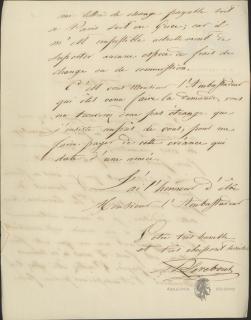 une lettre de change payable soit
à Paris soit en Grèce; car il
m'est impossible actuellement de
supporter aucune espèce de frais de
change ou de commission.
C'est vous Monsieur l'Ambassadeur
qui êtes venu faire la demande, vous
ne trouverez donc pas étrange que
j'insiste auprès de vous, pour me
faire payer de cette créance qui
date d'une année.
J'ai l'honneur d'être
Monsieur l'Ambassadeur
Votre très humble
et très obéissant serviteur